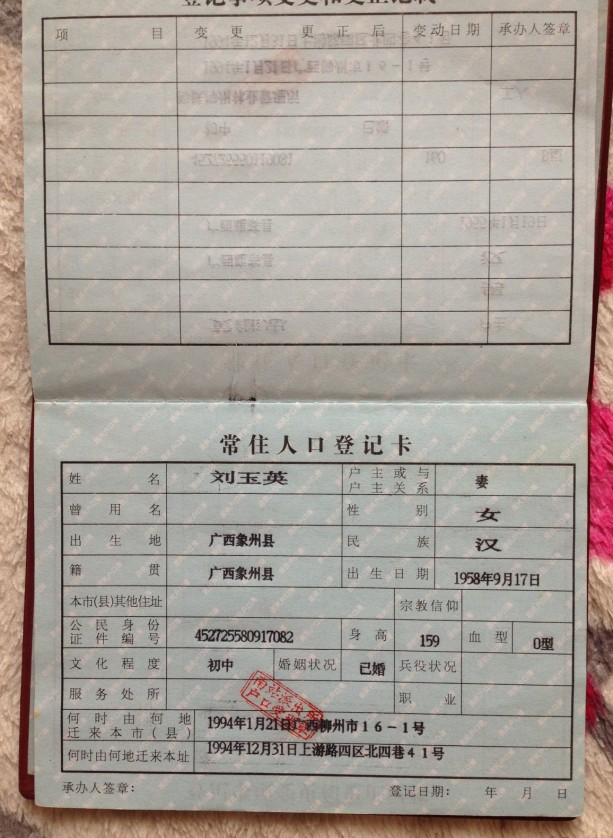 登记事项变更和更正记载
项目 变更 更正后 变动日期 承办人签章
常住人口登记卡
姓名 刘玉英 户主或与户主关系 妻
曾用名 性别 女
出生地 广西象州县 民族 汉
籍贯 广西象州县 出生日期 1958年9月17日
本市(县)其他住址 宗教信仰
公民身份证件编号 452725580917082 身高 159 血型 O型
文化程度 初中 婚姻状况 已婚 兵役状况
服务处所 职业
何时由何地迁来本市(县) 1994年1月21日广西柳州市16-1号
何时由何地迁来本址 1994年12月31日上游路四区北四巷41号
承办人签章: 登记日期: 年 月 日